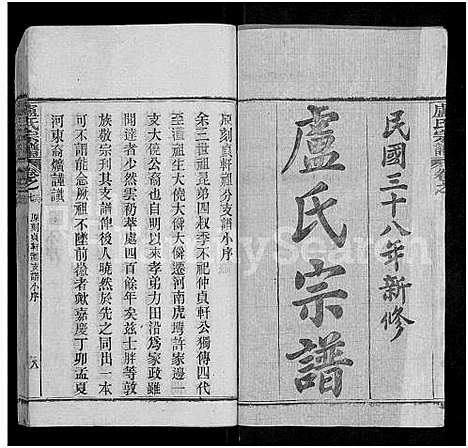 民國三十八年新修
盧氏宗譜
原刻貞軒祖分支譜小序
余三世祖昆弟四叔季不祀仲貞軒公獨傳四代
至祖生大僥大僯大僯遷河南虎塆許家邊一
支大僥公裔也自明以來孝弟力田沿為家政雖
聞達者少然雲礽萃處四百餘年矣茲士胖等敦
族敬宗刋其支譜俾後人於先之同出一本
可不謂能念厥祖不墜前徽者歟嘉慶丁卯孟夏
河東裔爌謹識
盧氏宗譜
原刻貞軒祖支譜小序
八